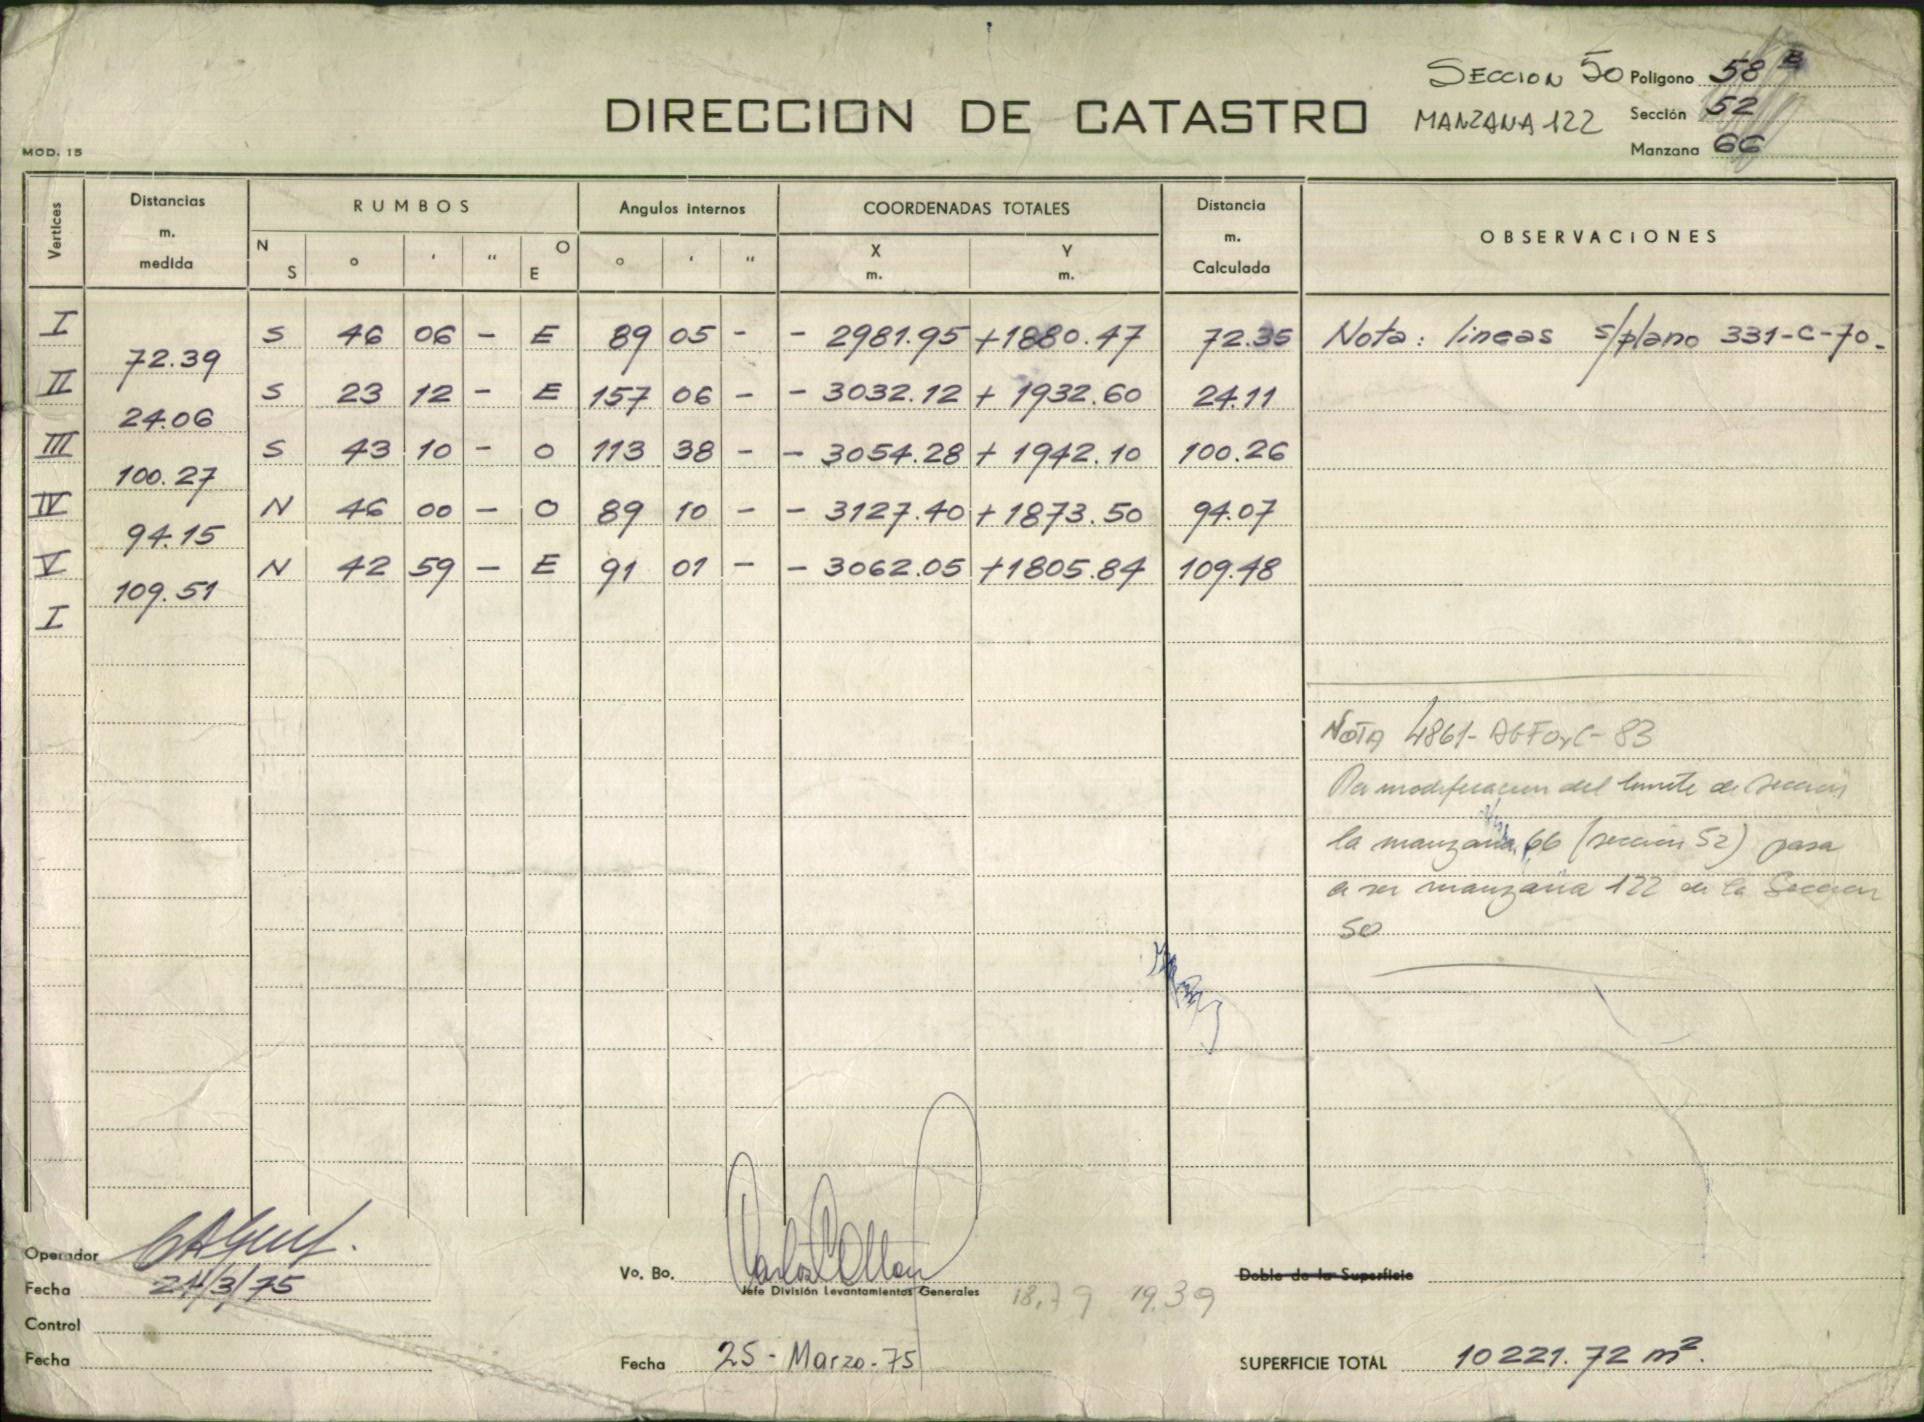 SECCION 50 Poligono 58 B
DIRECCION DE CATASTRO
MANZANA 122 Sección 52
MOD. 15
Manzana 66
Vertices
Distancias m. medida
RUMBOS
Angulos internos
COORDENADAS TOTALES
Distancia m. Calculada
OBSERVACIONES
N S ° ' " O E ° ' " X m. Y m.
I
S 46 06 - E 89 05 - - 2981.95 +1880.47 72.35 Nota: lineas s/plano 331-C-70.
72.39
II
S 23 12 - E 157 06 - - 3032.12 + 1932.60 24.11
24.06
III
S 43 10 - O 113 38 - - 3054.28 + 1942.10 100.26
100.27
IV
N 46 00 - O 89 10 - - 3127.40 + 1873.50 94.07
94.15
V
N 42 59 - E 91 01 - - 3062.05 +1805.84 109.48
109.51
I
NOTA 4861- DGFOyC- 83
Por modificacion del limite de seccion
la manzana 66 (seccion 52) pasa
a ser manzana 122 de la Seccion
50
Operador
Fecha 21/3/75
Control
Fecha
Vo. Bo.
Jefe División Levantamientos Generales
18,79 19,39
Fecha 25 - Marzo - 75
Doble de la Superficie
SUPERFICIE TOTAL 10221.72 m².